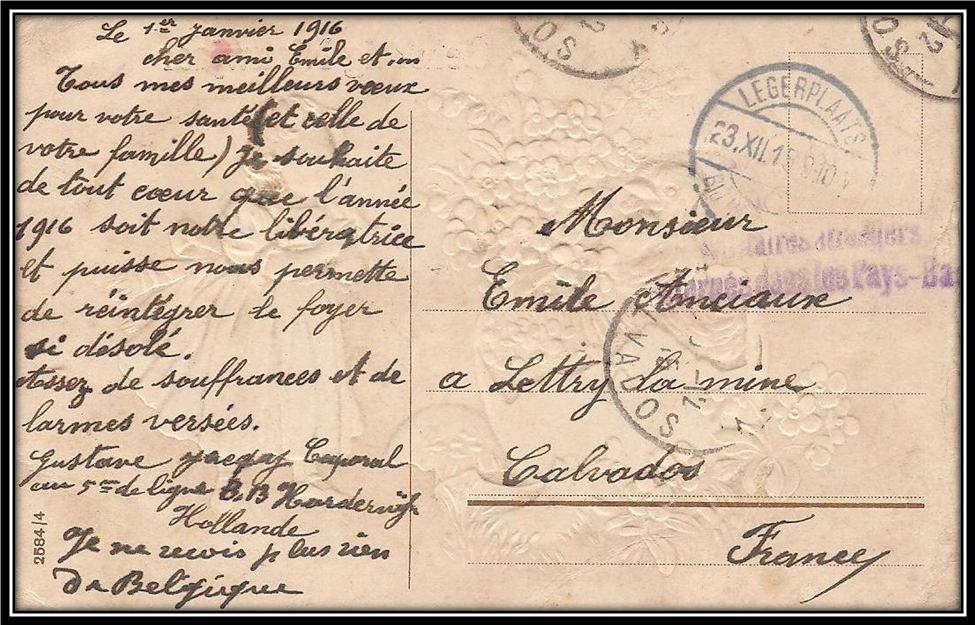 Le 1er Janvier 1916
cher ami Emile et
Tous mes meilleurs vœux
pour votre santé (et celle de
votre famille) je souhaite
de tout cœur que l'année
1916 soit notre libératrice
et puisse nous permette
de réintégrer le foyer
si désolé.
Assez de souffrances et de
larmes versées.
Gustave Caporal
au 5me de ligne Harderwijk
Hollande
Je ne reçois plus rien
De Belgique
2584/4
LEGERPLAATS
23.XII.15
Pays-Bas
Monsieur
Emile Anciaux
a Littry la mine
Calvados
France
CALVADOS